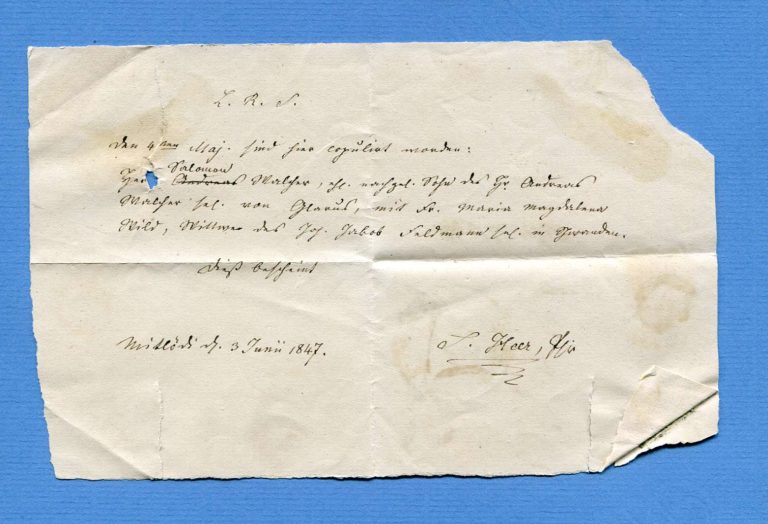 L. R. S.
Den 4ten Maj. sind hier copulirt worden:
Salomon
Andreas Walcher, ehl. nachgel. Sohn des Hr. Andreas
Walcher sel. von Glarus, mit Fr. Maria Magdalena
Wild, Wittwe des Joh. Jakob Feldmann sel. in Schwanden.
Dieß bescheint
Mitlödi d. 3 Junii 1847.
S. Heer, Pfr